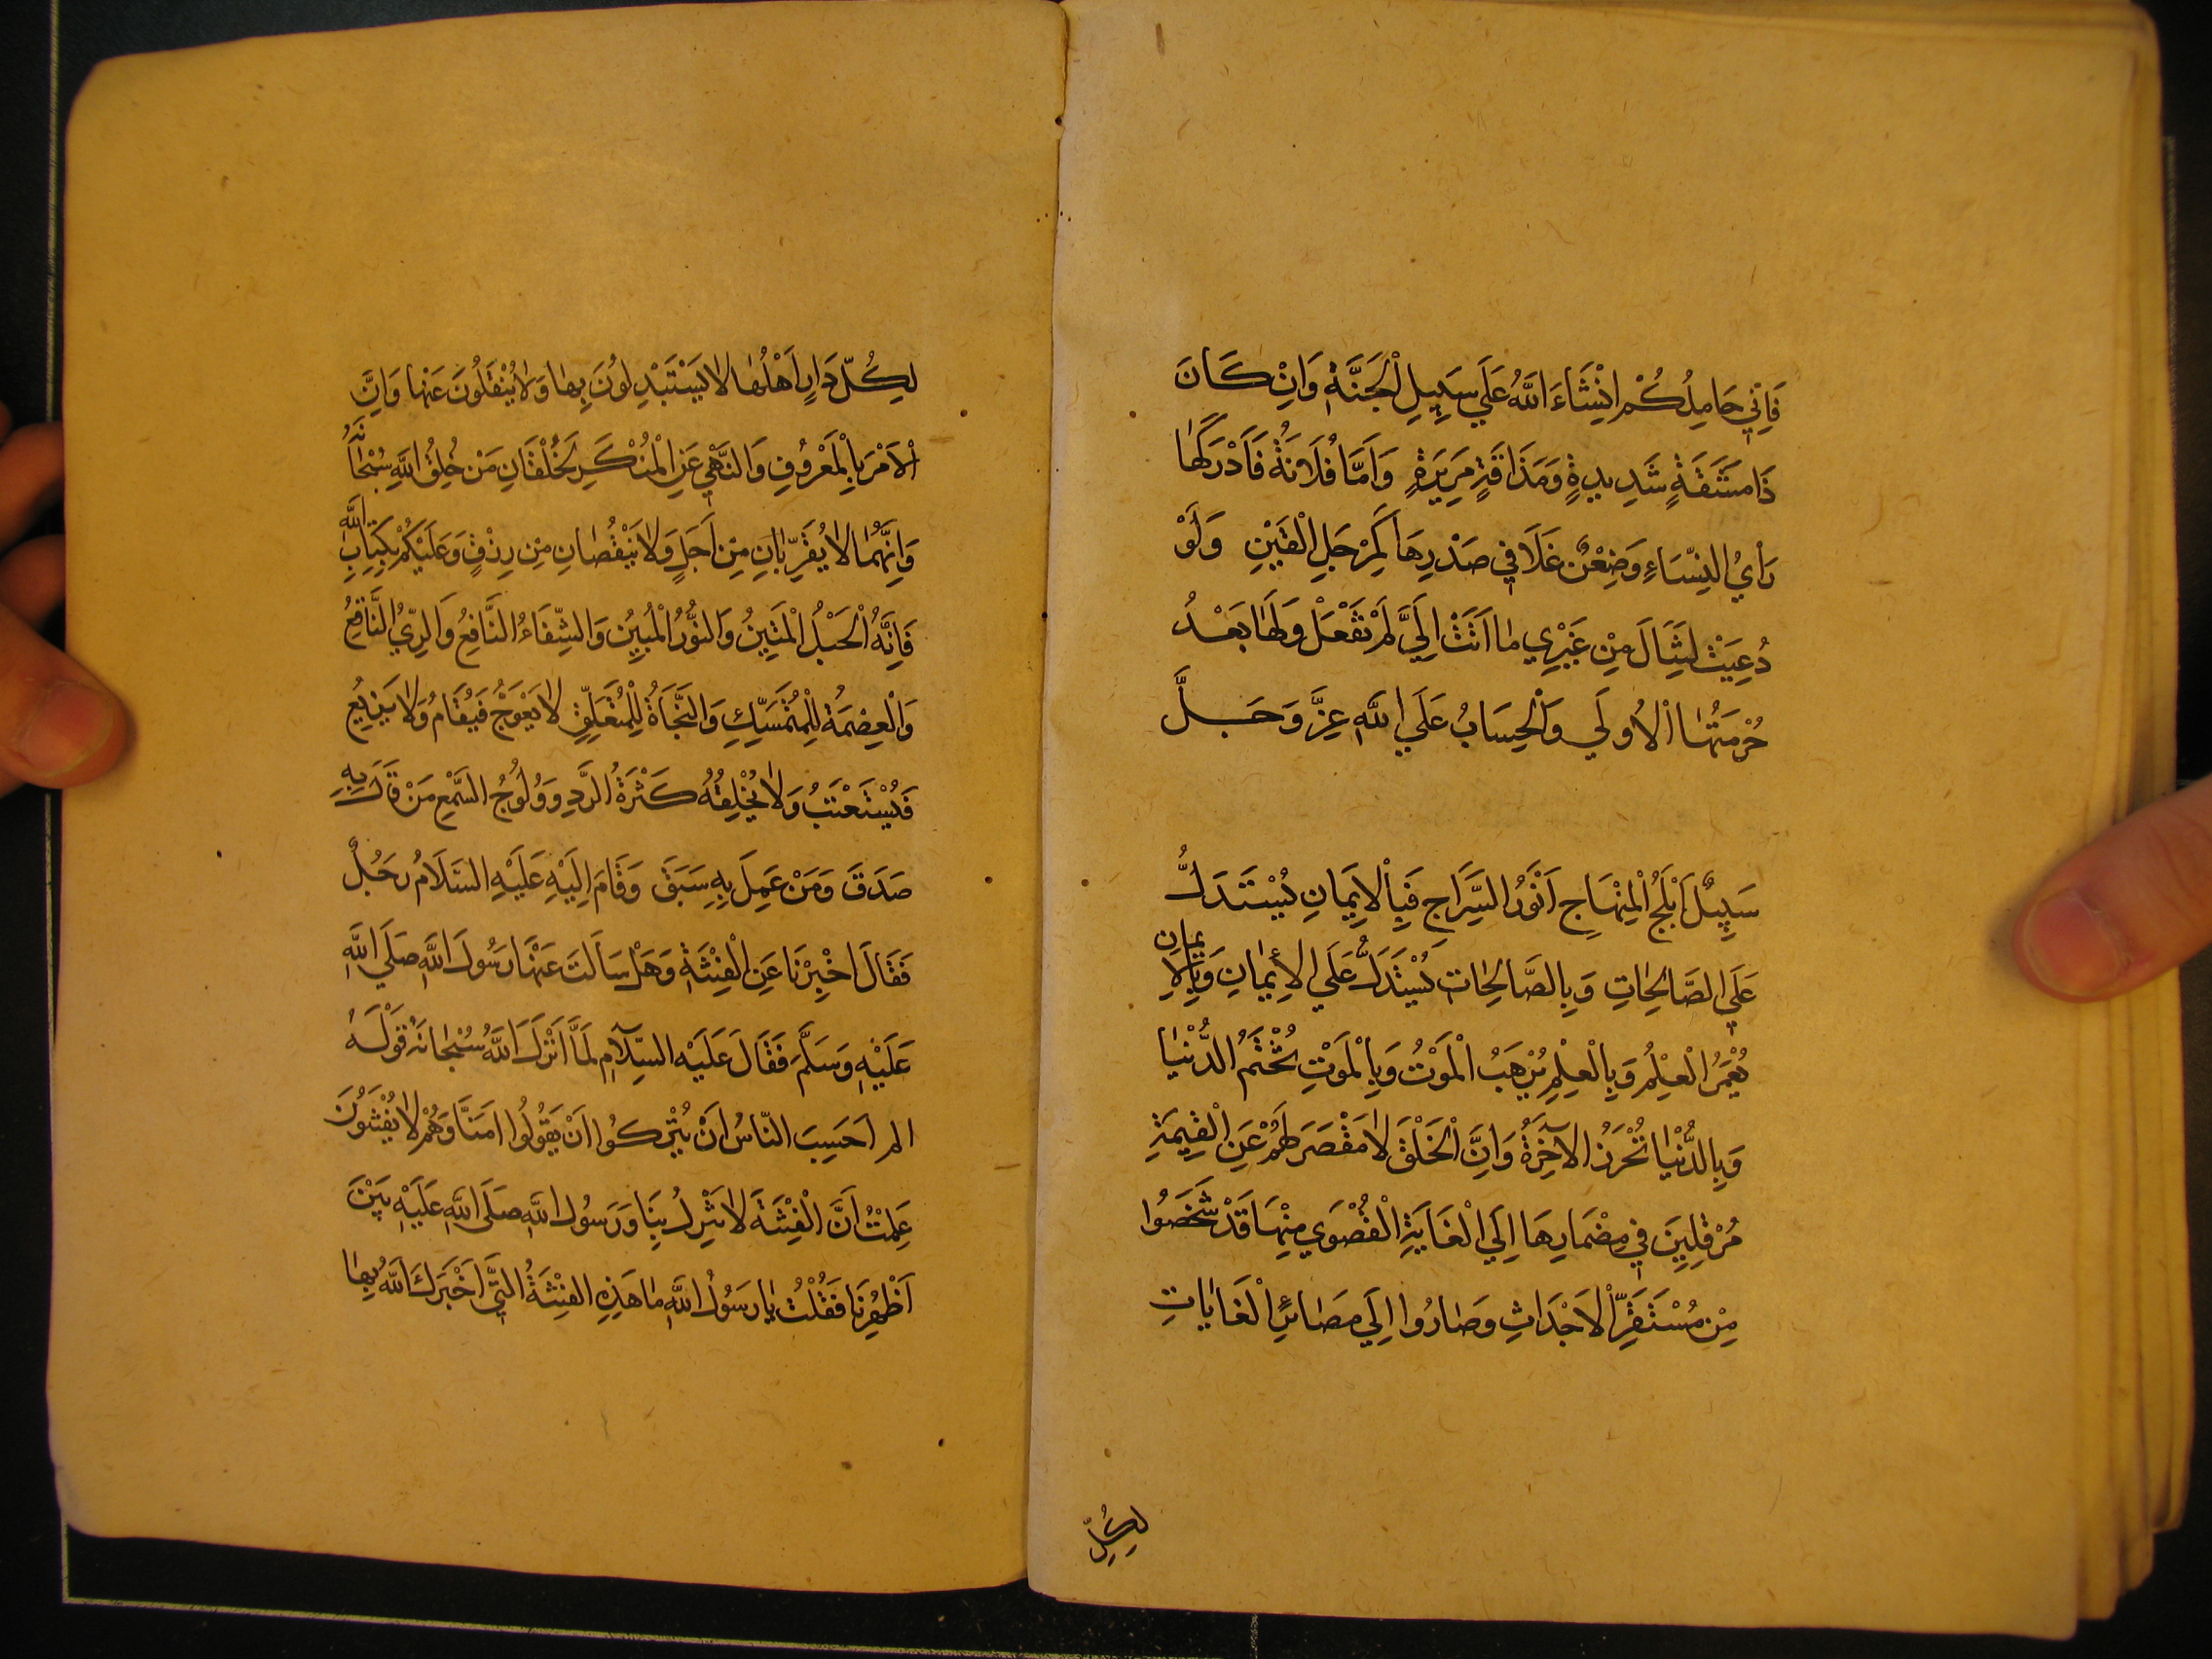 فَاِنّي حَامِلُكُمْ اِنْشَاءَ اللهُ عَلَي سَبِيلِ الْجَنَّةِ وَاِنْ كَانَ
ذَا مَشَقَةٍ شَدِيدةٍ وَمَذَاقَةٍ مَرِيَرةٍ وَاَمَّا فُلَانَةُ فَاَدْرَكَهَا
رَأيُ النِسّاءِ وَضِغْنٌ غَلَا فِي صَدْرِهَا كَمِرْجَلِ الْقَيْنِ وَلَوْ
دُعِيَتْ لِتَنَالَ مِنْ غَيْرِي مَا اَتَتْ اِلَيَّ لَمْ تَفْعَلْ وَلَهَا بَعْدُ
حُرْمَتُهَا الْاُولَي وَالْحِسَابُ عَلَي اللهِ عَزَّ وَجَلَّ
سَبِيلٌ اَبْلَجُ الْمِنْهَاجِ اَنْوَرُ السِّرَاجِ فَبِالْاِيمَانِ يُسْتَدَلُّ
عَلَي الصَّالِحَاتِ وَبِالصَّالِحَاتِ يُسْتَدَلُّ عَلَي الْاِيمَانِ وَبِالْاِيمَانِ
يُعْمَرُ الْعِلْمُ وَبِالْعِلْمِ يُرْهَبُ الْمَوْتُ وَبِالْمَوْتِ تُخْتَمُ الدُّنْيَا
وَبِالدُّنْيَا تُحْرَزُ الآخِرَةُ وَاِنَّ الْخَلْقَ لَا مَقْصَرَ لَهُمْ عَنِ الْقِيمَةِ
مُرْقِلِينَ فِي مِضْمَارِهَا اِلَي الْغَايَةِ الْقُصْوَي مِنْهَا قَدْ شَخَصُوا
مِنْ مُسْتَقَرِّ الْاَجْدَاثِ وَصَارُوا اِلَي مَصَائِرِ الْغَايَاتِ
لِكُلِّ
لِكُلِّ دَارٍ اَهْلُهَا لَا يَسْتَبْدِلُونَ بِهَا وَلَا يُنْقَلُونَ عَنْهَا وَاِنَّ
الْاَمْرَ بِالْمَعْرُوفِ وَالنَّهْيَ عَنِ الْمُنْكَرِ لَخُلْقَانِ مَنْ خُلِقُ اللهِ سُبْحَانَهُ
وَاِنَّهُمَا لَا يُقَرِّبَانِ مِنْ اَجَلٍ وَلَا يَنْقُصَانِ مِنْ رِزْقٍ وَعَلَيْكُمْ بِكِتَابِ اللهِ
فَاِنَّهُ الْحَبْلُ الْمَتِينُ وَالنُّورُ الْمُبِينُ وَالشِّفَاءُ النَّافِعُ وَالرِّيُ النَّاقِعُ
وَالْعِصْمَةُ لِلْمُتَمَسِّكِ وَالنَّجَاةُ لِلْمُتَعَلِّقِ لَا يَعْوَجُّ فَيُقَامُ وَلَا يَزِيغُ
فَيُسْتَعْتَبُ وَلَا يُخْلِقُهُ كَثْرَةُ الرَّدِ وَوُلُوجُ السَّمْعِ مَنْ قَالَ بِهِ
صَدَقَ وَمَنْ عَمِلَ بِهِ سَبَقَ وَقَامَ اِلَيْهِ عَلَيْهِ السَّلَامُ رَجُلٌ
فَقَالَ اَخْبِرْنَا عَنِ الْفِتْنَةِ وَهَلْ سَاَلتَ عَنْهَا رَسُولَ اللهِ صَلَي اللهِ
عَلَيْهِ وَسَلَّمَ فَقَالَ عَلَيْهِ السِّلآمِ لَمَّا اَنْزَلَ اللهُ سُبْحَانَهُ قَوْلَهُ
الم اَحَسِبَ النّاسُ اَنْ يُتْرَكُوا اَنْ يَقُولُوا امَنَّا وَهُمْ لَا يُفْتَنُونَ
عَلِمْتُ اَنَّ الْفِتْنَةَ لَا تَنْزِلُ بِنَا وَرَسُولُ اللهِ صَلَي اللهِ عَلَيْهِ بَيْنَ
اَظْهُرِنَا فَقُلْتُ يَا رَسُولَ اللهِ مَا هَذِهِ الفِتْنَةُ الَّتِي اَخْبَرَكَ اللهُ بِهَا